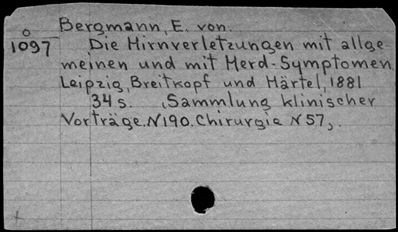 Bergmann, E. von.
O
1097
Die Hirnverletzungen mit allge-
meinen und mit Herd-Symptomen.
Leipzig, Breitkopf und Härtel, 1881
34 s. (Sammlung klinischer
Vorträge. N190. Chirurgie N57).